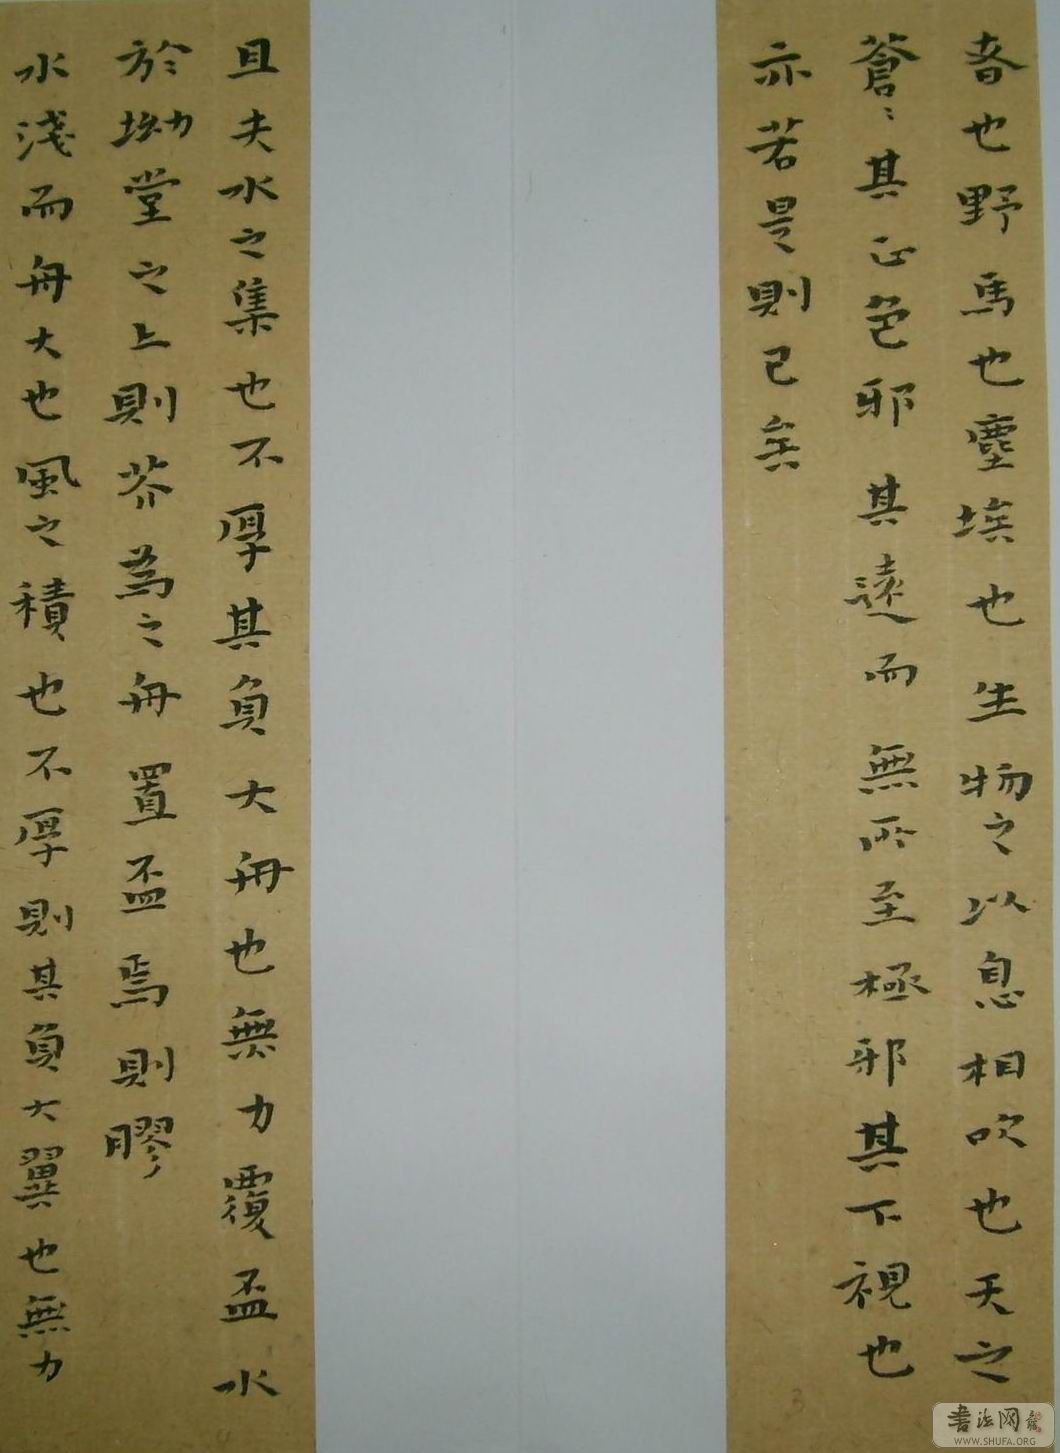 者也野馬也塵埃也生物之以息相吹也天之
蒼〻其正色邪其遠而無所至極邪其下視也
亦若是則已矣
且夫水之集也不厚其負大舟也無力覆盃水
於坳堂之上則芥為之舟置盃焉則膠
水淺而舟大也風之積也不厚則其負大翼也無力
3
4
書法网
WWW.SHUFA.ORG